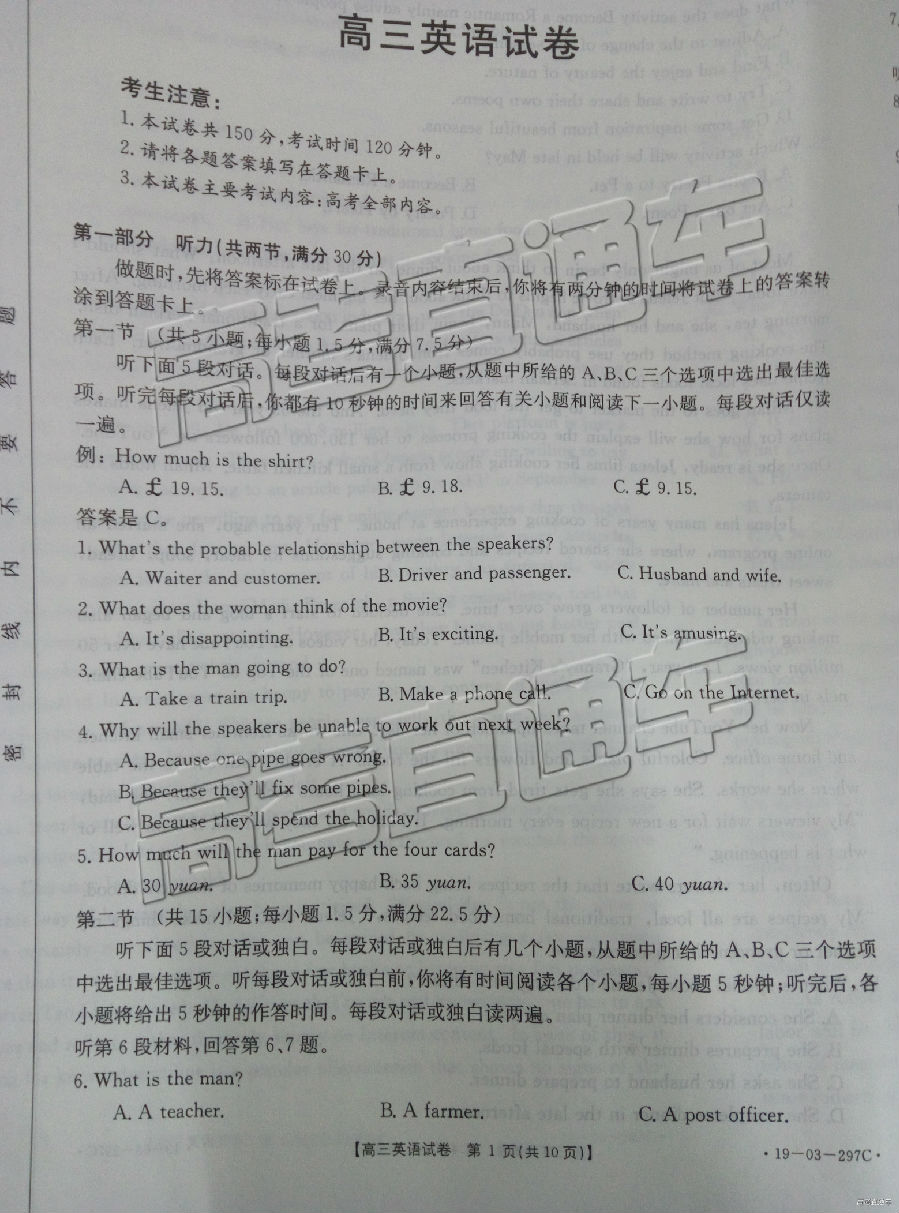 高三英语试卷
考生注意:
1. 本试卷共 150 分,考试时间 120 分钟。
2. 请将各题答案填写在答题卡上。
3. 本试卷主要考试内容:高考全部内容。
第一部分 听力(共两节,满分 30 分)
做题时,先将答案标在试卷上。录音内容结束后,你将有两分钟的时间将试卷上的答案转
涂到答题卡上。
第一节 (共 5 小题;每小题 1.5 分,满分 7.5 分)
听下面 5 段对话。每段对话后有一个小题,从题中所给的 A、B、C 三个选项中选出最佳选
项。听完每段对话后,你都有 10 秒钟的时间来回答有关小题和阅读下一小题。每段对话仅读
一遍。
例: How much is the shirt?
A. £ 19. 15. B. £ 9. 18. C. £ 9. 15.
答案是 C。
1. What's the probable relationship between the speakers?
A. Waiter and customer. B. Driver and passenger. C. Husband and wife.
2. What does the woman think of the movie?
A. It's disappointing. B. It's exciting. C. It's amusing.
3. What is the man going to do?
A. Take a train trip. B. Make a phone call. C. Go on the Internet.
4. Why will the speakers be unable to work out next week?
A. Because one pipe goes wrong.
B. Because they'll fix some pipes.
C. Because they'll spend the holiday.
5. How much will the man pay for the four cards?
A. 30 yuan. B. 35 yuan. C. 40 yuan.
第二节 (共 15 小题;每小题 1.5 分,满分 22.5 分)
听下面 5 段对话或独白。每段对话或独白后有几个小题,从题中所给的 A、B、C 三个选项
中选出最佳选项。听每段对话或独白前,你将有时间阅读各个小题,每小题 5 秒钟;听完后,各
小题将给出 5 秒钟的作答时间。每段对话或独白读两遍。
听第 6 段材料,回答第 6、7 题。
6. What is the man?
A. A teacher. B. A farmer. C. A post officer.
【高三英语试卷 第 1 页(共 10 页)】
·19—03—297C·
密 封 线 内 不 要 答 题
高考直通车
高考直通车